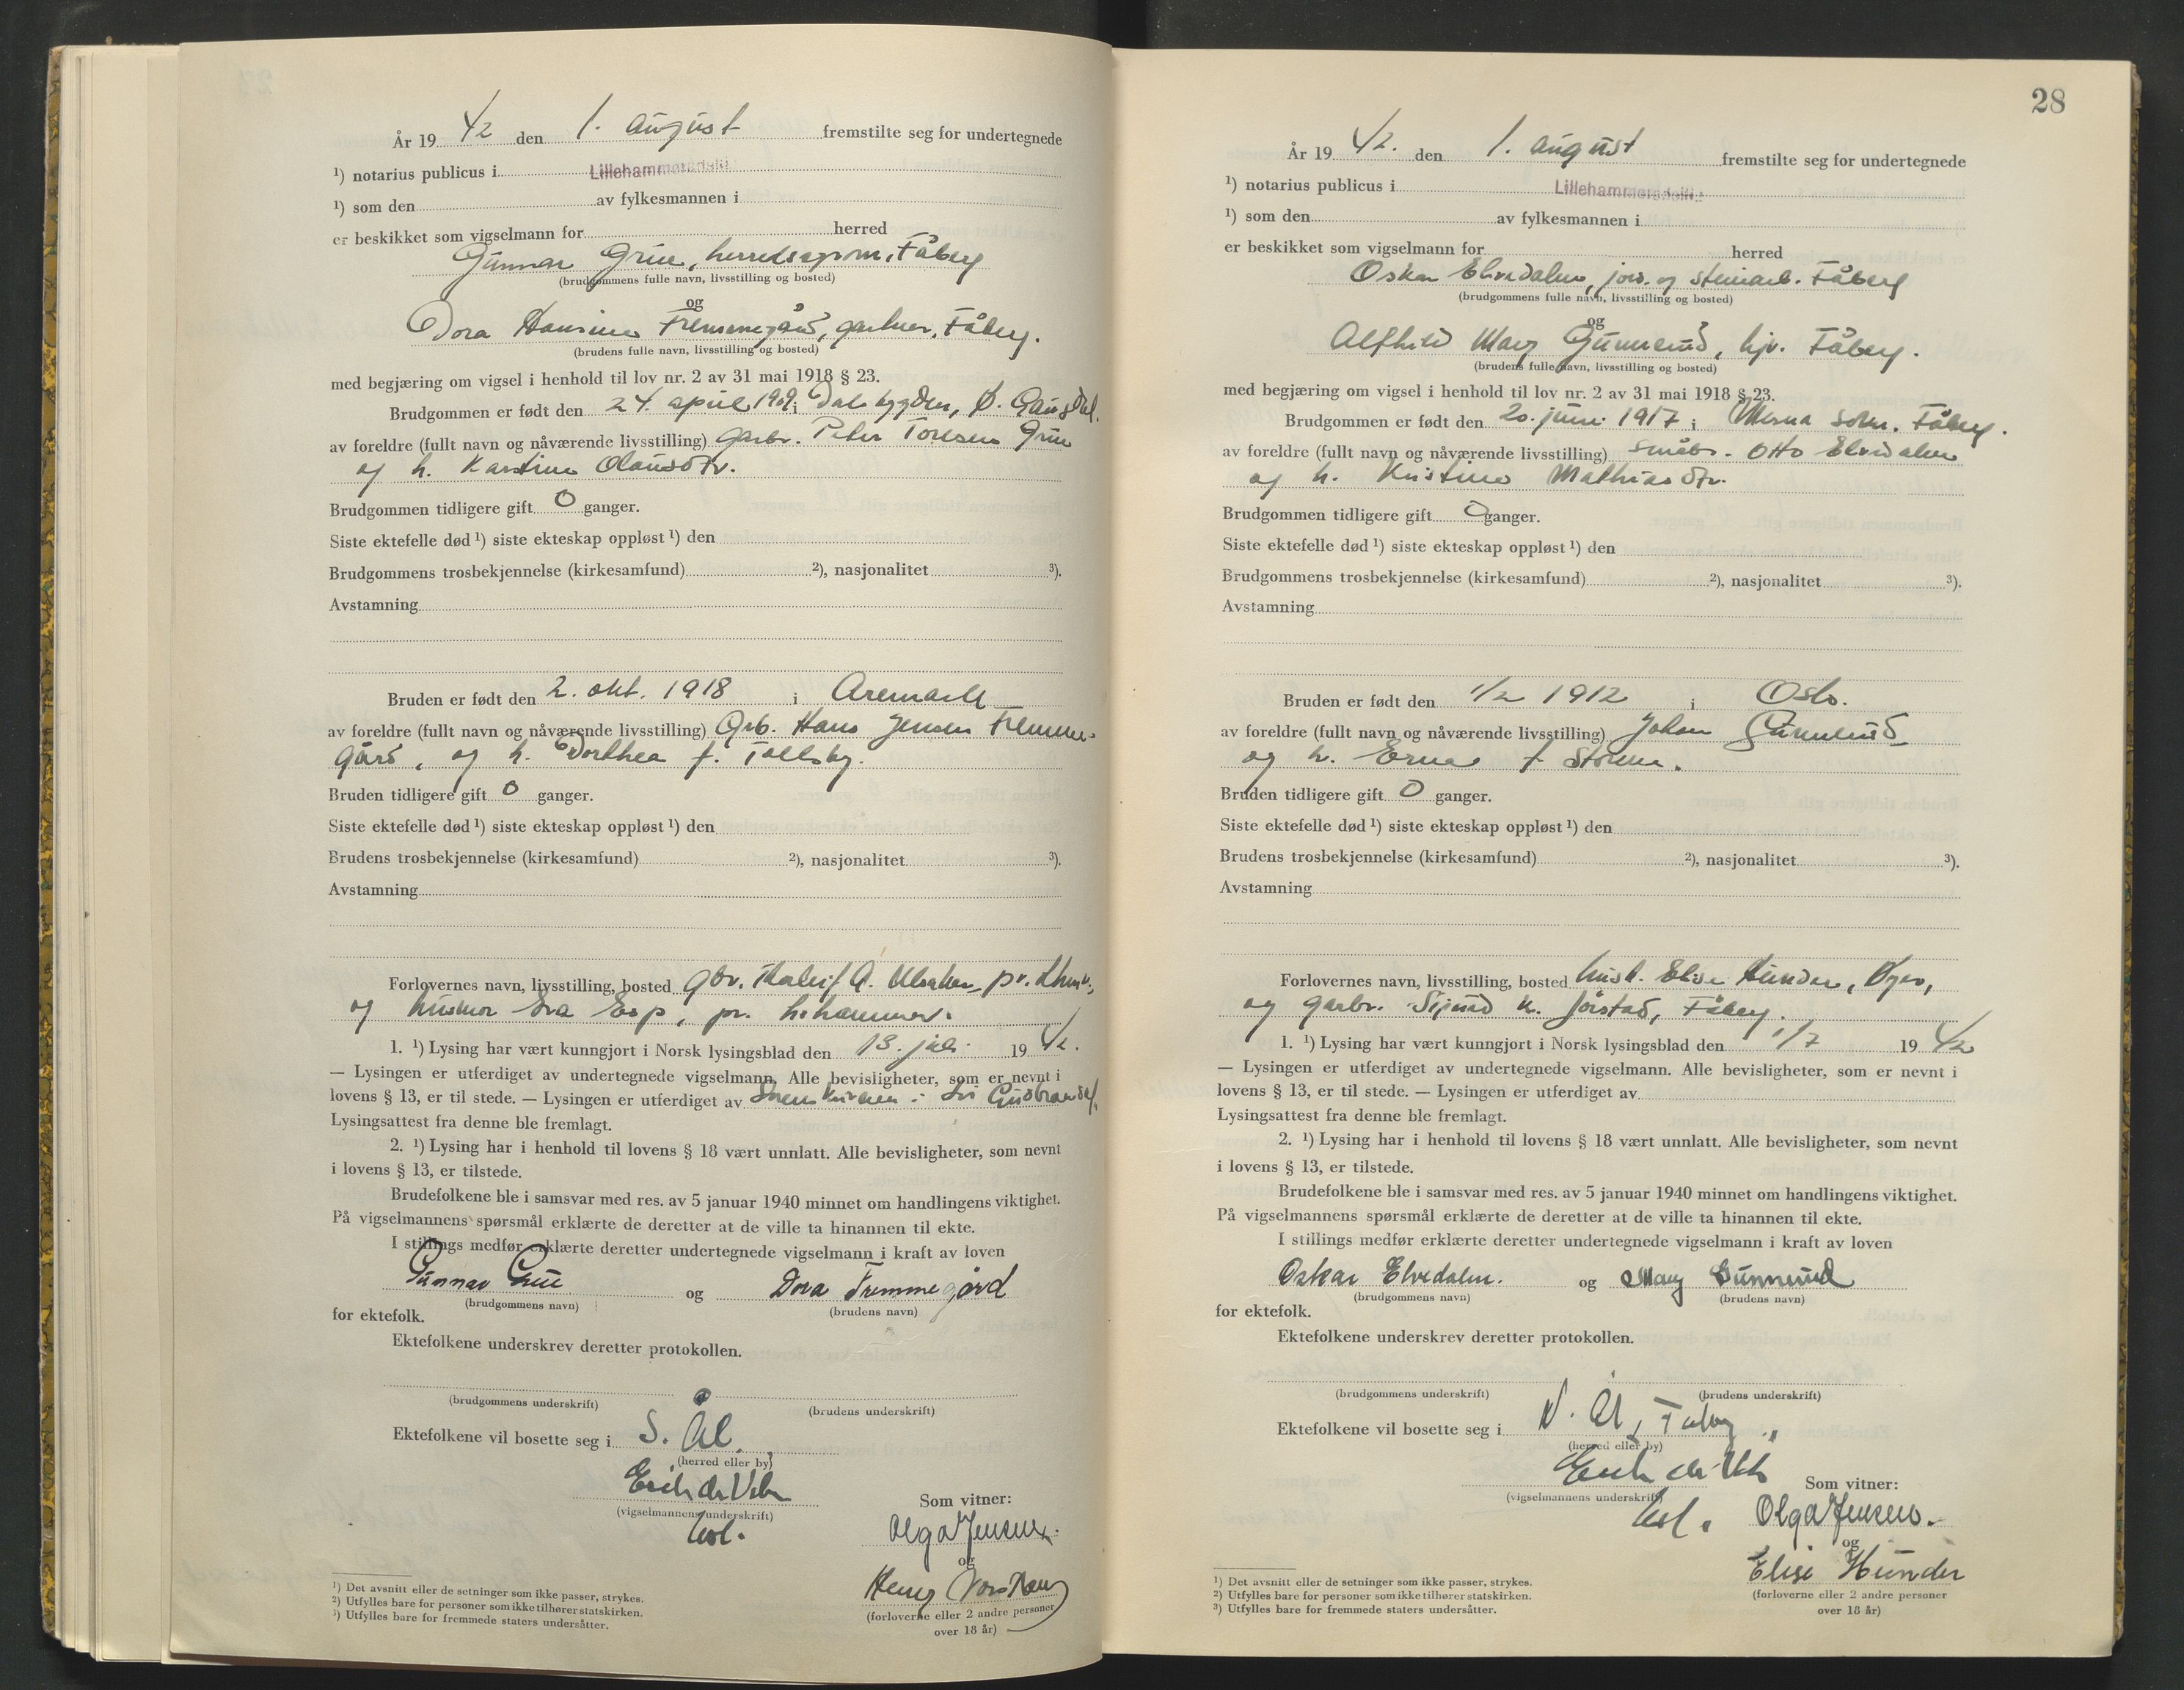 År 19 42 den 1. august fremstilte seg for undertegnede
1) notarius publicus i Lillehammer
1) som den av fylkesmannen i
er beskikket som vigselmann for herred
Gunnar Grue, herredsagronom, Fåberg
(brudgommens fulle navn, livsstilling og bosted)
og
Dora Hansine Fremmegård, gartner, Fåberg.
(brudens fulle navn, livsstilling og bosted)
med begjæring om vigsel i henhold til lov nr. 2 av 31 mai 1918 § 23.
Brudgommen er født den 24. april 1909 i Ø. Gausdal.
av foreldre (fullt navn og nåværende livsstilling) garbr. Peter Toresen Grue
og h. Karstine Olausdtr.
Brudgommen tidligere gift 0 ganger.
Siste ektefelle død 1) siste ekteskap oppløst 1) den
Brudgommens trosbekjennelse (kirkesamfund) 2), nasjonalitet 3).
Avstamning
Bruden er født den 2. okt. 1918 i Aremark
av foreldre (fullt navn og nåværende livsstilling) Grb. Hans Jensen Fremme-
gård, og h. Dorthea f. Tollsby.
Bruden tidligere gift 0 ganger.
Siste ektefelle død 1) siste ekteskap oppløst 1) den
Brudens trosbekjennelse (kirkesamfund) 2), nasjonalitet 3).
Avstamning
Forlovernes navn, livsstilling, bosted gbr. A. pr. Lhmr.,
og husmor Eva Esp, pr. L.hammer.
1. 1) Lysing har vært kunngjort i Norsk lysingsblad den 13. juli 19 42.
— Lysingen er utferdiget av undertegnede vigselmann. Alle bevisligheter, som er nevnt i
lovens § 13, er til stede. — Lysingen er utferdiget av Sorenskriveren i
Lysingsattest fra denne ble fremlagt.
2. 1) Lysing har i henhold til lovens § 18 vært unnlatt. Alle bevisligheter, som nevnt
i lovens § 13, er tilstede.
Brudefolkene ble i samsvar med res. av 5 januar 1940 minnet om handlingens viktighet.
På vigselmannens spørsmål erklærte de deretter at de ville ta hinannen til ekte.
I stillings medfør erklærte deretter undertegnede vigselmann i kraft av loven
Gunnar Grue og Dora Fremmegård
(brudgommens navn) (brudens navn)
for ektefolk.
Ektefolkene underskrev deretter protokollen.
(brudgommens underskrift) (brudens underskrift)
Ektefolkene vil bosette seg i S. Ål.
(herred eller by)
Erich
(vigselmannens underskrift)
Som vitner:
Olga Jensen.
og
Henry
(forloverne eller 2 andre personer
over 18 år)
1) Det avsnitt eller de setninger som ikke passer, strykes.
2) Utfylles bare for personer som ikke tilhører statskirken.
3) Utfylles bare for fremmede staters undersåtter.
28
År 19 42. den 1. august fremstilte seg for undertegnede
1) notarius publicus i Lillehammer
1) som den av fylkesmannen i
er beskikket som vigselmann for herred
Oskar Elvedalen, jord. og steinarb. Fåberg
(brudgommens fulle navn, livsstilling og bosted)
og
Alfhild Mary Gunnerud, hjv. Fåberg.
(brudens fulle navn, livsstilling og bosted)
med begjæring om vigsel i henhold til lov nr. 2 av 31 mai 1918 § 23.
Brudgommen er født den 20. juni 1917 i Mesna sokn, Fåberg.
av foreldre (fullt navn og nåværende livsstilling) småbr. Otto Elvedalen
og h. Kristine Mathiasdtr.
Brudgommen tidligere gift 0 ganger.
Siste ektefelle død 1) siste ekteskap oppløst 1) den
Brudgommens trosbekjennelse (kirkesamfund) 2), nasjonalitet 3).
Avstamning
Bruden er født den 1/2 1912 i Oslo.
av foreldre (fullt navn og nåværende livsstilling) Johan Gunnerud
og h. Erna f.
Bruden tidligere gift 0 ganger.
Siste ektefelle død 1) siste ekteskap oppløst 1) den
Brudens trosbekjennelse (kirkesamfund) 2), nasjonalitet 3).
Avstamning
Forlovernes navn, livsstilling, bosted Elise Hunder, Øyer,
og garbr. Sigurd Jørstad, Fåberg.
1. 1) Lysing har vært kunngjort i Norsk lysingsblad den 1/7 19 42
— Lysingen er utferdiget av undertegnede vigselmann. Alle bevisligheter, som er nevnt i
lovens § 13, er til stede. — Lysingen er utferdiget av
Lysingsattest fra denne ble fremlagt.
2. 1) Lysing har i henhold til lovens § 18 vært unnlatt. Alle bevisligheter, som nevnt
i lovens § 13, er tilstede.
Brudefolkene ble i samsvar med res. av 5 januar 1940 minnet om handlingens viktighet.
På vigselmannens spørsmål erklærte de deretter at de ville ta hinannen til ekte.
I stillings medfør erklærte deretter undertegnede vigselmann i kraft av loven
Oskar Elvedalen. og Mary Gunnerud
(brudgommens navn) (brudens navn)
for ektefolk.
Ektefolkene underskrev deretter protokollen.
(brudgommens underskrift) (brudens underskrift)
Ektefolkene vil bosette seg i N. Ål, Fåberg
(herred eller by)
Erich
(vigselmannens underskrift)
Som vitner:
Olga Jensen.
og
Elise Hunder
(forloverne eller 2 andre personer
over 18 år)
1) Det avsnitt eller de setninger som ikke passer, strykes.
2) Utfylles bare for personer som ikke tilhører statskirken.
3) Utfylles bare for fremmede staters undersåtter.